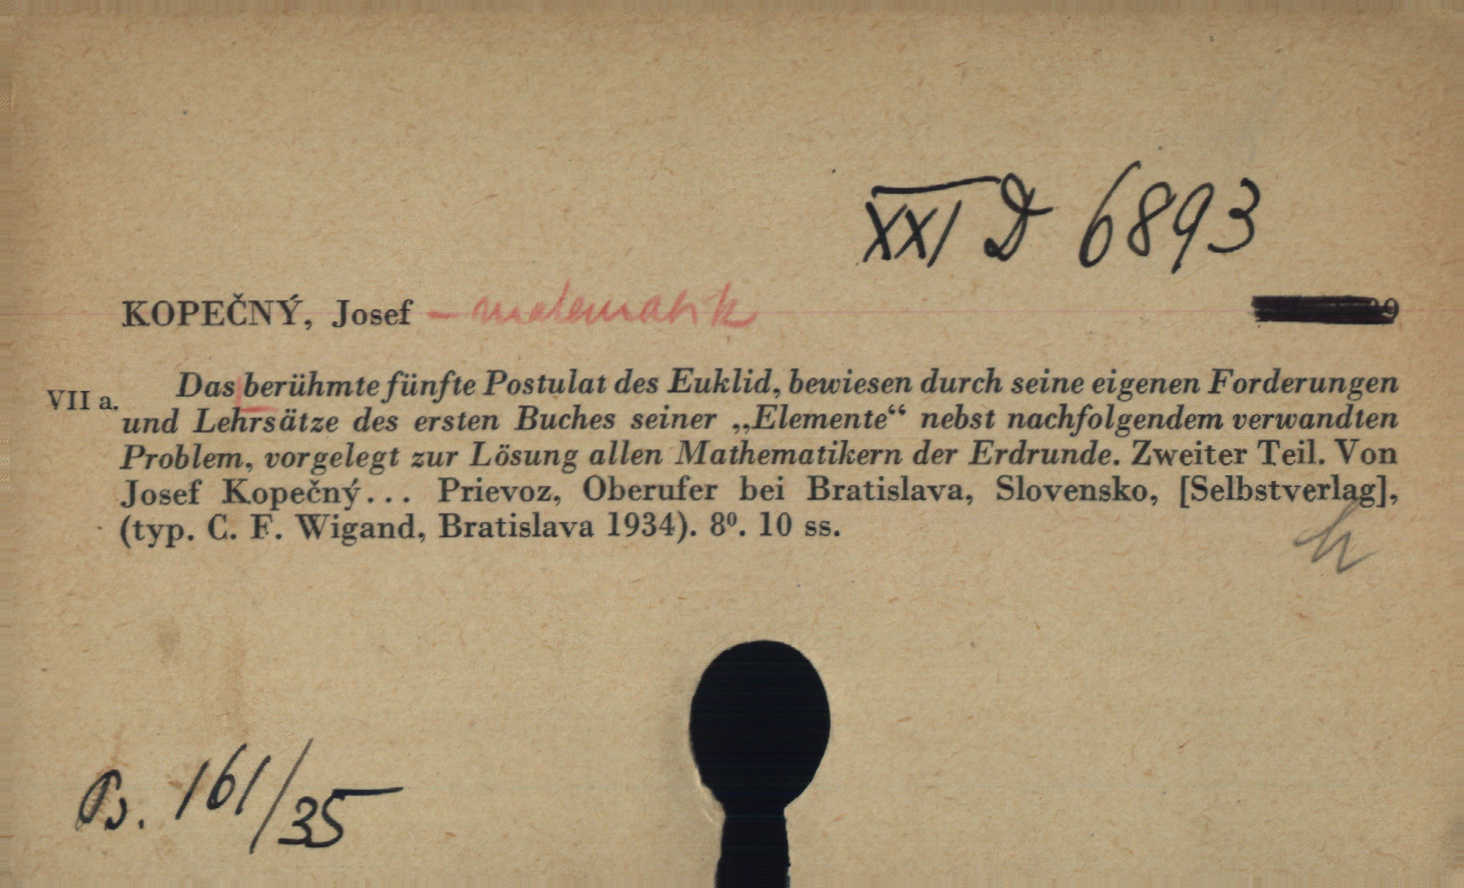 XXI D 6893
KOPEČNÝ, Josef – matematik
9
Das berühmte fünfte Postulat des Euklid, bewiesen durch seine eigenen Forderungen
VII a.
und Lehrsätze des ersten Buches seiner „Elemente“ nebst nachfolgendem verwandten
Problem, vorgelegt zur Lösung allen Mathematikern der Erdrunde. Zweiter Teil. Von
Josef Kopečný... Prievoz, Oberufer bei Bratislava, Slovensko, [Selbstverlag],
(typ. C. F. Wigand, Bratislava 1934). 8⁰. 10 ss.
161/35